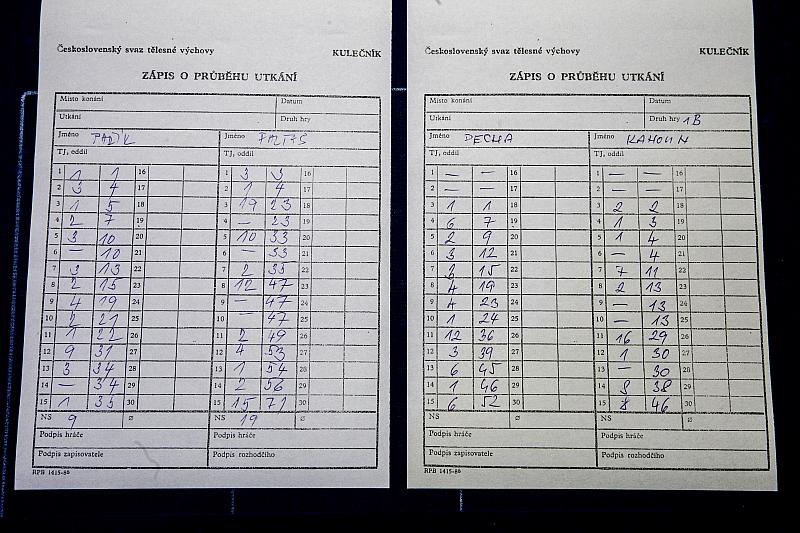 Československý svaz tělesné výchovy
KULEČNÍK
ZÁPIS O PRŮBĚHU UTKÁNÍ
Místo konání Datum
Utkání Druh hry
Jméno Jméno
TJ, oddíl TJ, oddíl
1 1 1 16 1 3 3 16
2 3 4 17 2 1 4 17
3 1 5 18 3 19 23 18
4 2 7 19 4 — 23 19
5 3 10 20 5 10 33 20
6 — 10 21 6 — 33 21
7 3 13 22 7 2 35 22
8 2 15 23 8 12 47 23
9 4 19 24 9 — 47 24
10 2 21 25 10 — 47 25
11 1 22 26 11 2 49 26
12 9 31 27 12 4 53 27
13 3 34 28 13 1 54 28
14 — 34 29 14 2 56 29
15 1 35 30 15 15 71 30
NS 9 ø NS 19 ø
Podpis hráče Podpis hráče
Podpis zapisovatele Podpis rozhodčího
RPB 1415-86
Československý svaz tělesné výchovy
KULEČNÍK
ZÁPIS O PRŮBĚHU UTKÁNÍ
Místo konání Datum
Utkání Druh hry 1B
Jméno PECHA Jméno KAHOUN
TJ, oddíl TJ, oddíl
1 — — 16 1 — — 16
2 — — 17 2 — — 17
3 1 1 18 3 2 2 18
4 6 7 19 4 1 3 19
5 2 9 20 5 1 4 20
6 3 12 21 6 — 4 21
7 3 15 22 7 7 11 22
8 4 19 23 8 2 13 23
9 4 23 24 9 — 13 24
10 1 24 25 10 — 13 25
11 12 36 26 11 16 29 26
12 3 39 27 12 1 30 27
13 6 45 28 13 — 30 28
14 1 46 29 14 8 38 29
15 6 52 30 15 8 46 30
NS ø NS ø
Podpis hráče Podpis hráče
Podpis zapisovatele Podpis rozhodčího
RPB 1415-86